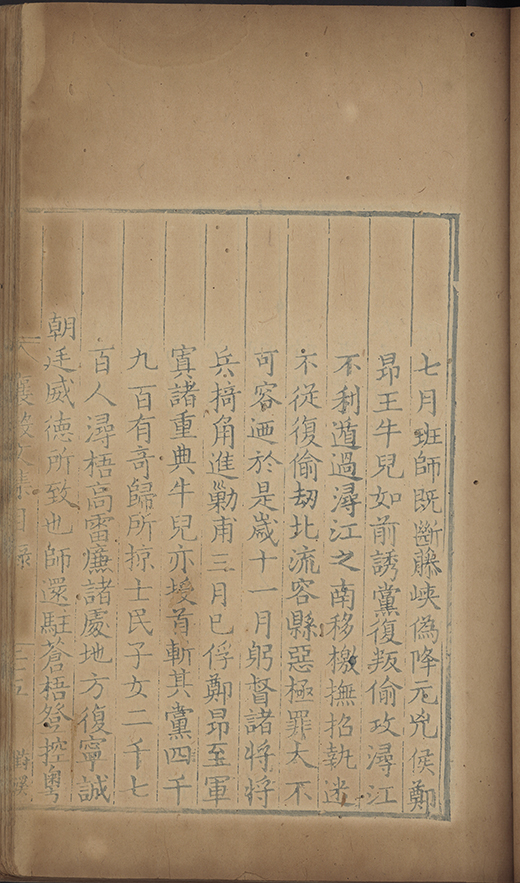 七月班師既斷藤峽偽降元兇侯鄭
昂王牛兒如前誘黨復叛偷攻潯江
不利遁過潯江之南移檄撫招執迷
不從復偷劫北流容縣惡極罪大不
可容迺於是歲十一月躬督諸將將
兵搞角進剿甫三月已俘鄭昂至軍
寘諸重典牛兒亦授首斬其黨四千
九百有奇歸所掠士民子女二千七
百人潯梧高雷廉諸處地方復寧誠
朝廷威德所致也師還駐蒼梧登控粵
襄毅文集目錄
三十五